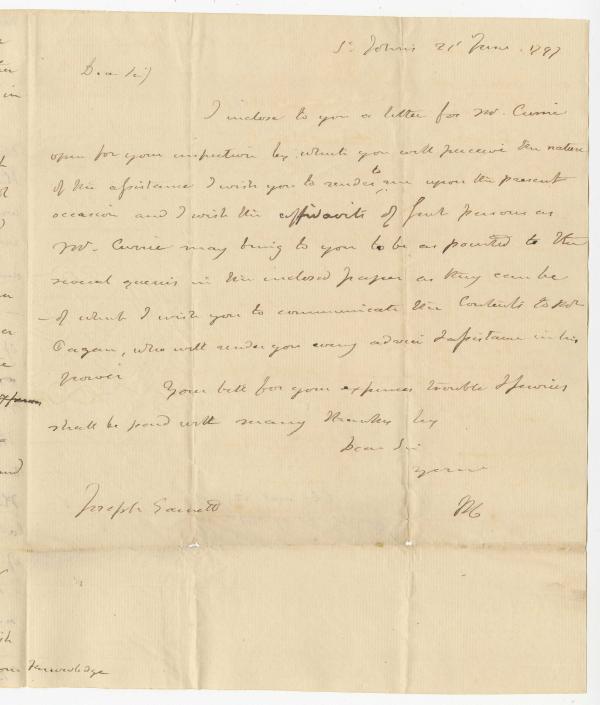 St. Johns 21st June 1797
Dear Sir
I inclose to you a letter for Mr. Currie
open for your inspection by which you will perceive the nature
of the assistance I wish you to render to me upon the present
occasion and I wish the affidavits of such persons as
Mr. Currie may bring to you to be as pointed to the
several queries in the inclosed paper as they can be
– of what I wish you to communicate the Contents to Mr
Cagan, who will render you every advice & assistance in his
power
Your bill for your expences trouble & services
shall be paid with many thanks by
Dear Sir
Yours
Joseph Garnett
knowledge